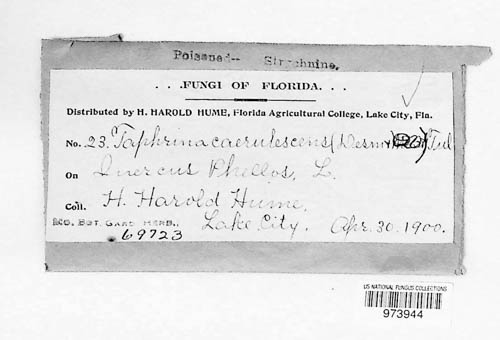 Poisoned-- Strychnine.
. . .FUNGI OF FLORIDA. . . .
Distributed by H. HAROLD HUME, Florida Agricultural College, Lake City, Fla.
No. 23. Taphrina caerulescens (Desm. ) Tul
On Quercus Phellos, L.
Coll. H. Harold Hume.
Lake City. Apr. 30. 1900.
MO. BOT. GARD. HERB.,
69723
US NATIONAL FUNGUS COLLECTIONS
973944